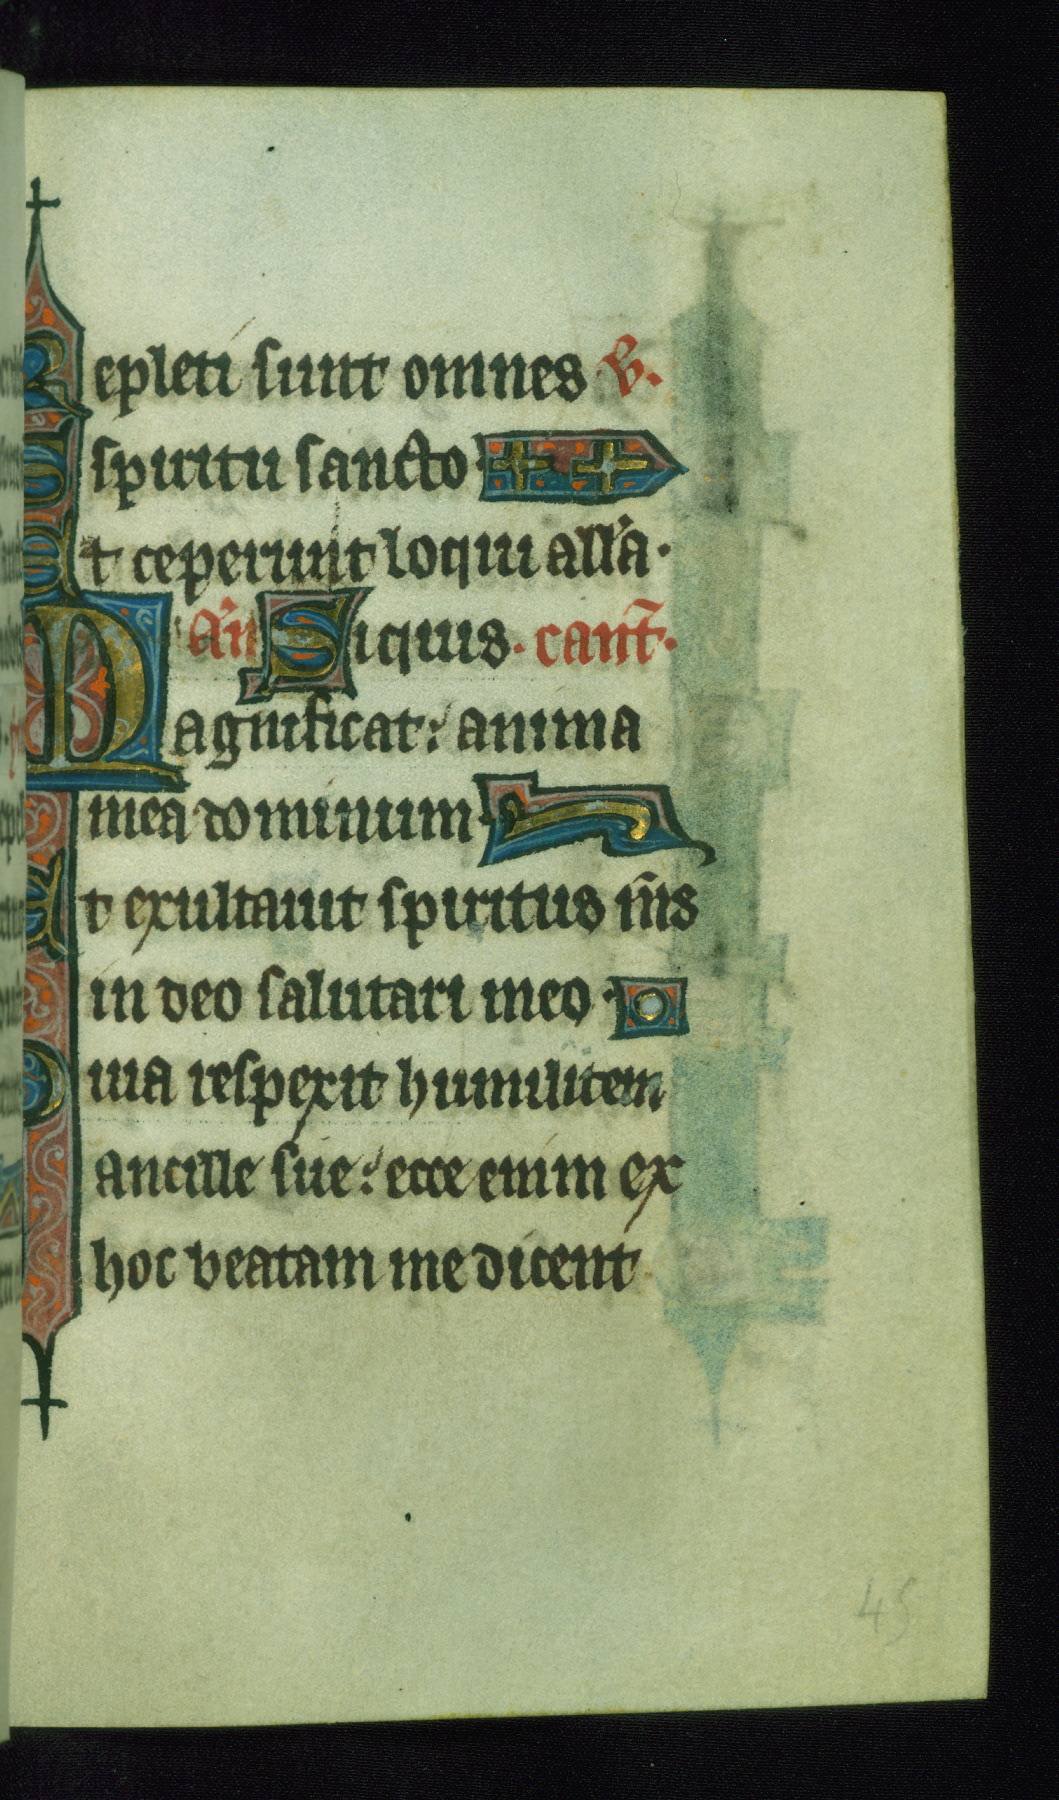 Repleti sunt omnes V.
Spiritu sancto
Et ceperunt loqui all'a.
añ Siquis. cant̄.
Magnificat: anima
mea dominum
Et exultauit spiritus m̄s
in deo salutari meo.
Quia respexit humilitem
ancille sue: ecce enim ex
hoc beatam me dicent
45